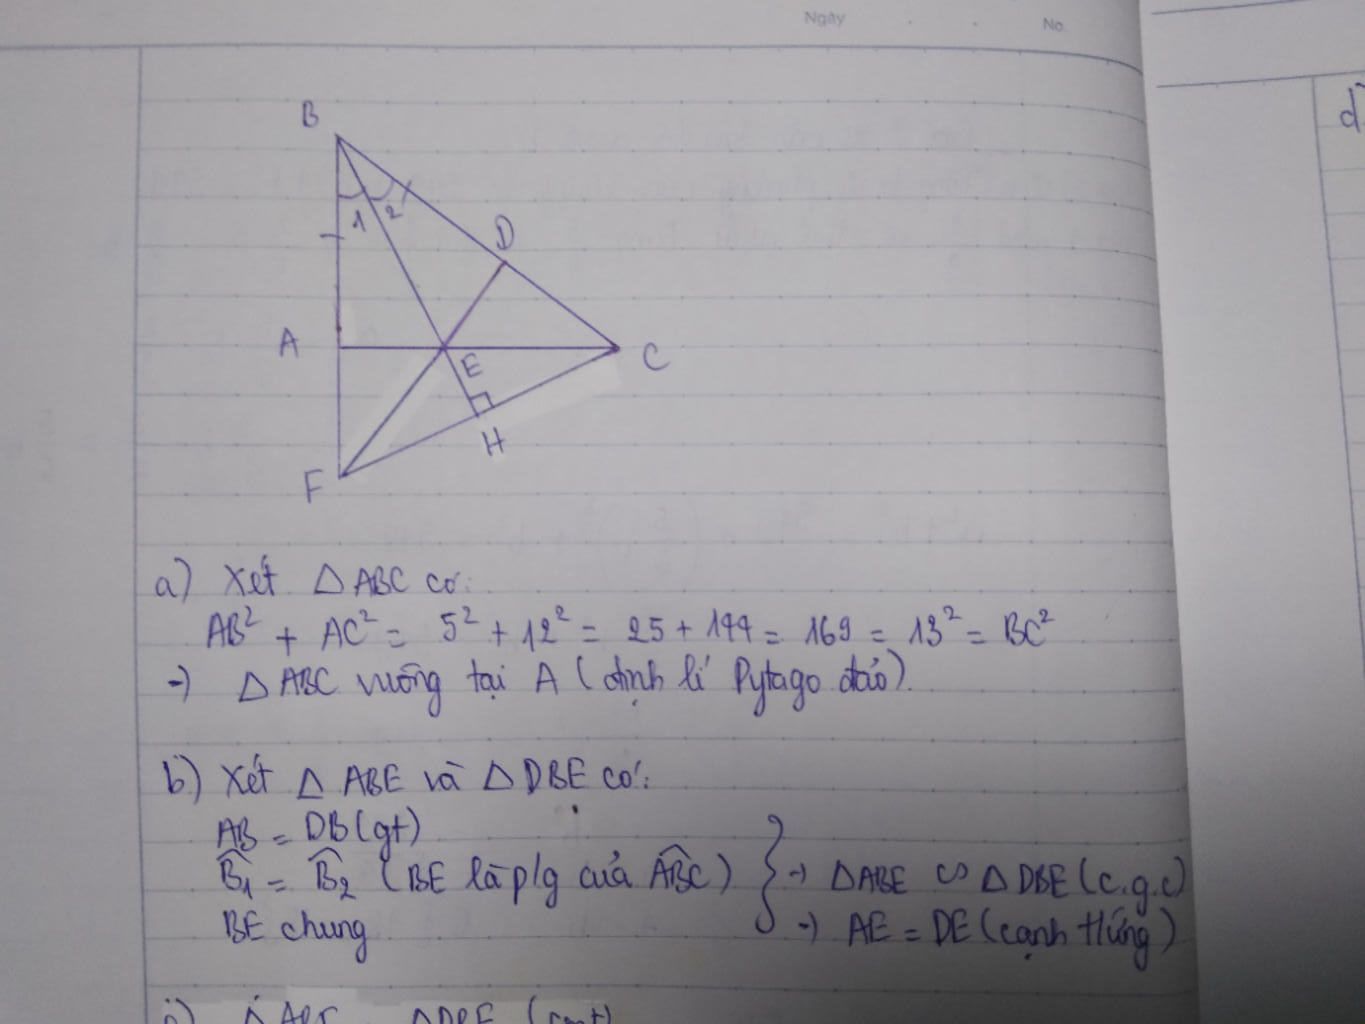 Ngày . . No.
d)
B
1 2
D
A
E
C
H
F
a) Xét △ ABC có:
AB² + AC² = 5² + 12² = 25 + 144 = 169 = 13² = BC²
→ △ ABC vuông tại A (định lí Pytago đảo).
b) Xét △ ABE và △ DBE có:
AB = DB (gt)
B̂₁ = B̂₂ (BE là p/g của ABĈ) } → △ABE ∽ △ DBE (c.g.c)
BE chung → AE = DE (cạnh tứng)
△DBE (cmt)